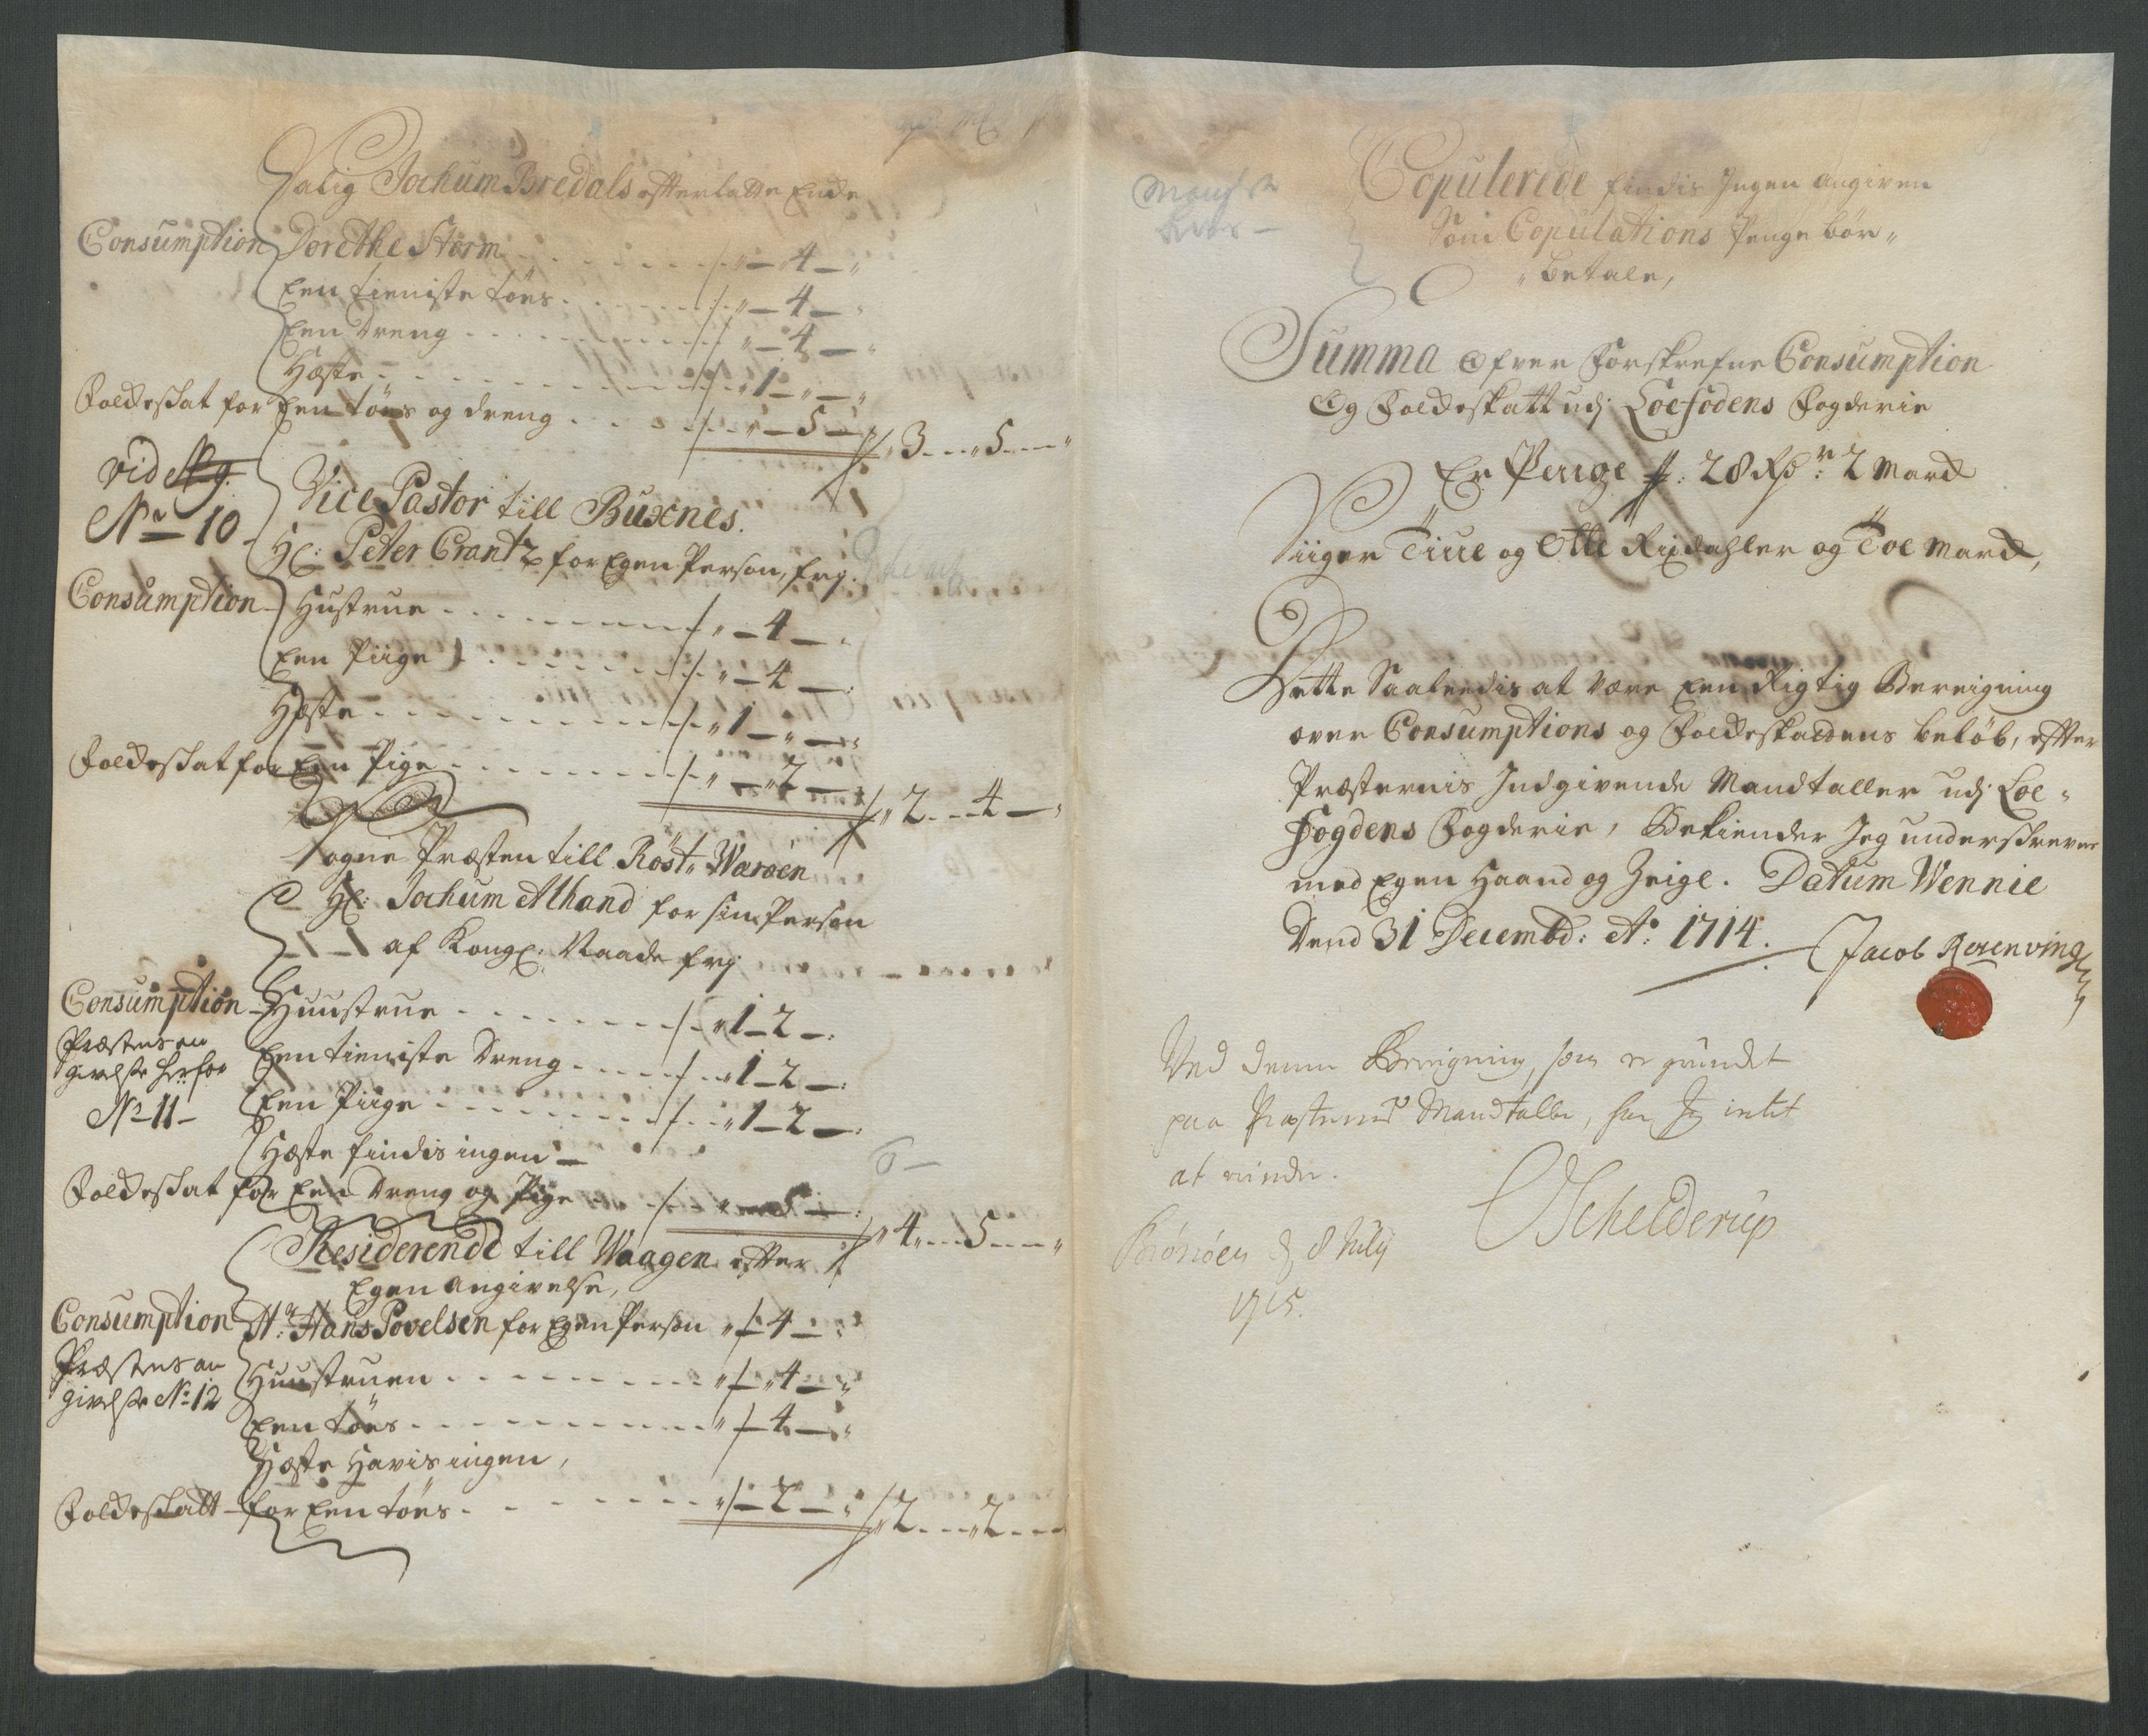 Salig Jochum Bredals efterlatte Encke
Consumption Dorethe Storm - - - - „ — 4 — „
Een tieniste töes - - - - „ — 4 — „
Een Dreng - - - - „ — 4 — „
Hæste - - - - „ 1 — „ — „
Folckeskat for Een töes og dreng - - - „ — 5 — „ 3 - - - 5 - - „
vide N 9.
No 10
Vice Pastor till Buxnes.
Hr: Peter Crantz for Egen Person, frj.
Consumption Hustrue - - - - „ — 4 — „
Een Piige - - - - „ — 4 — „
Hæste - - - - „ 1 — „ — „
Folckeskat for Een Pige - - - - „ — 2 — „ 2 - - 4 — „
Sogne Præsten till Röst, Waröen
Hr: Jochum Alhand for sin Person
af Kongl: Naade frj
Consumption Huustrue - - - - „ 1 — 2 — „
Præstens an
givelse herfor
No 11 —
Een tieniste Dreng - - - - „ 1 — 2 — „
Een Piige - - - - „ 1 — 2 — „
Hæste findis ingen —
6 —
Folckeskat for Een Dreng og Pige - - „ — 5 — „ 4 - - - 5 - - „
Residerende till Waagen efter
Egen Angivelse,
Consumption Hr: Hans Povelsen for Egen Person „ — 4 — „
Præstens an
givelse No 12
Huustruen - - - - „ — 4 — „
Een töes - - - - „ — 4 — „
Hæste Havis ingen,
Folckeskatt — for Een töes - - - - „ — 2 — „ 2 - - - 2 - -
Copulerede findis Ingen angiven
Som Copulations Penge bör„
„betale,
Summa Ofver Forskrefne Consumption
Og Folckeskatt udj Loefodens Fogderie
Er Penge //: 28 Rdr: 2 Marck
Siiger Tiue og Otte Rixdahler og Toe Marck,
Dette Saaledis at være Een Rigtig Bereigning
over Consumptions og Folckeskattens beløb, efter
Præsternis Indgivende Mandtaller udj Loe„
Fogdens Fogderie, Bekiender Jeg underskreven
med Egen Haand og Zeigl. Datum Wennie
Dend 31 Decembr: Ao: 1714.
Jacob Rosenving
Ved denne Bereigning, som er grundet
paa Præsternes Mandtaller, har Jeg intet
at erindre.
Brönöen d 8 July
1715.
Schelderup